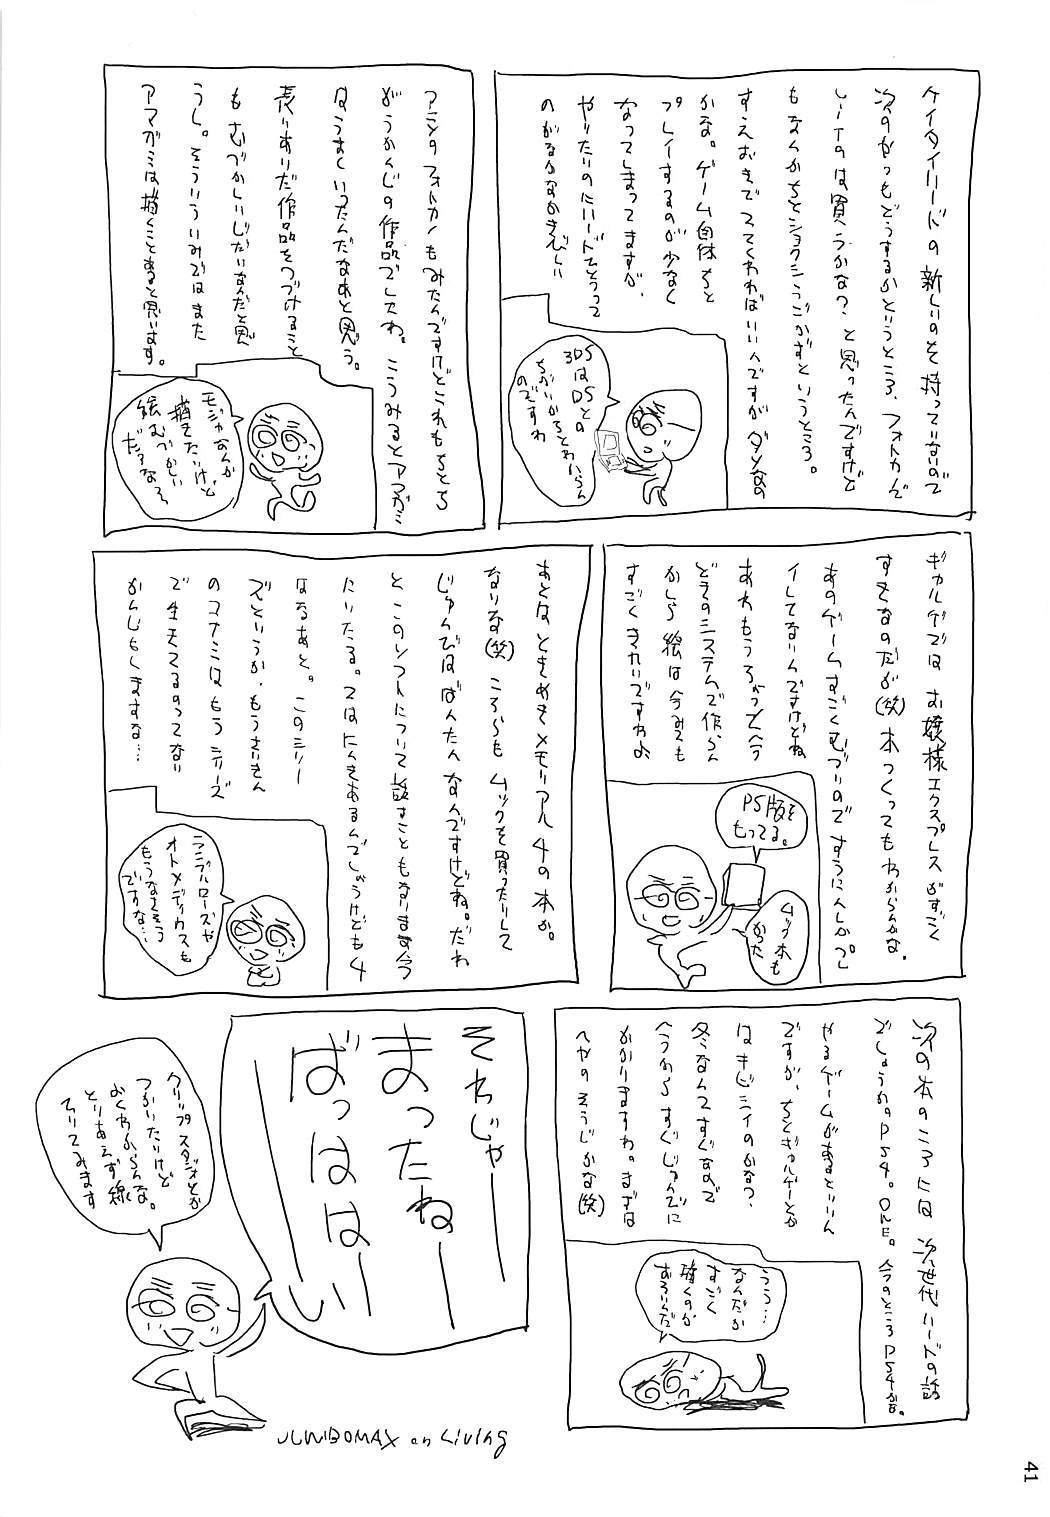 ケイタイハードの新しいのを持っていないので
次のがつもどうするかというところ、フォトカノ
レートのは買うかな？と思ったんですけど
もなんかちとショクシうごかずというところ。
すえおきででてくれればいいんですがダメなの
かな。ゲーム自体ちと
プレイするのが少なく
なってしまってますが、
やりたいのにハードでとうって
のがなかなかきびしい
3DSは
DSとの
ちがいがちとわからん
のですわ
アニメのフォトカノもみたんですけどこれもちとち
がうかんじの作品でしたわ。こうみるとアマガミ
はうまくいったんだなあと思う。
売りありだ作品をつづけること
もむづかしいじだいなんだと思
うし。そういういみではまた
アマガミは描くことあると思います。
モジャなんか
描きたいけど
絵むづかしい
だろなぁ
ギャルゲでは お嬢様エクスプレスがすごく
すきなのだが(笑) 本つくってもわからんかな。
あのゲームすごくむづいので すうにんしかプレ
イしてないんですけどね
あれもうろがってへう
どきのシステムで作らん
かしら 絵は今みても
すごくきれいですわよ
PS版を
もってる。
ムック本も
かった
あとはときめきメモリアル4の本か。
なりな(笑) ころらも ムックを買ったりして
じゅんびはばんたんなんですけどね。だわ
とこのソフトについて話すこともなりますが今
にいたる。ではにんきあるんでしょうけども4
はなるあと。このシリー
ズというか、もうさいきん
のコナミはもう シリーズ
で生きてるのってない
かんじもしますな…
ランブルローズや
オトメディウスも
もうなさそう
ですな…
次の本のころには 次世代ハードの話
でしょうか。PS4。ONE。今のところPS4かな。
やるゲームがあるといいん
ですが、ちとギャルゲーとか
はキビシイのかな？
冬なんてすぐなので
今うからすぐじゅんびに
かかりますわ。まずは
へやのそうじかな(笑)
うう…
なんだか
すごく
描くのが
おそいんだよ
それじゃー
まったねー
ばっははーい
クリップスタジオとか
つかいたいけど
よくわからんな。
とりあえず線
でいってみます
JUMBOMAX on Living
41